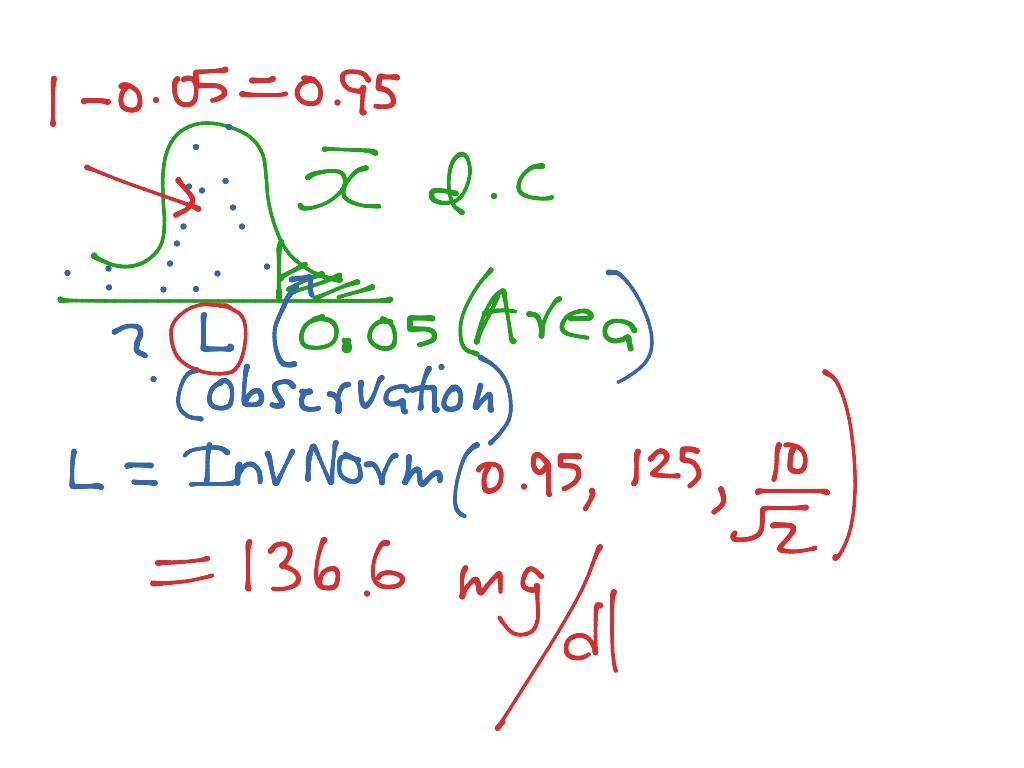 1 - 0.05 = 0.95
x̄ d.c
? L (0.05 (Area)
(Observation)
L = InvNorm(0.95, 125, 10/√2)
= 136.6 mg/dl